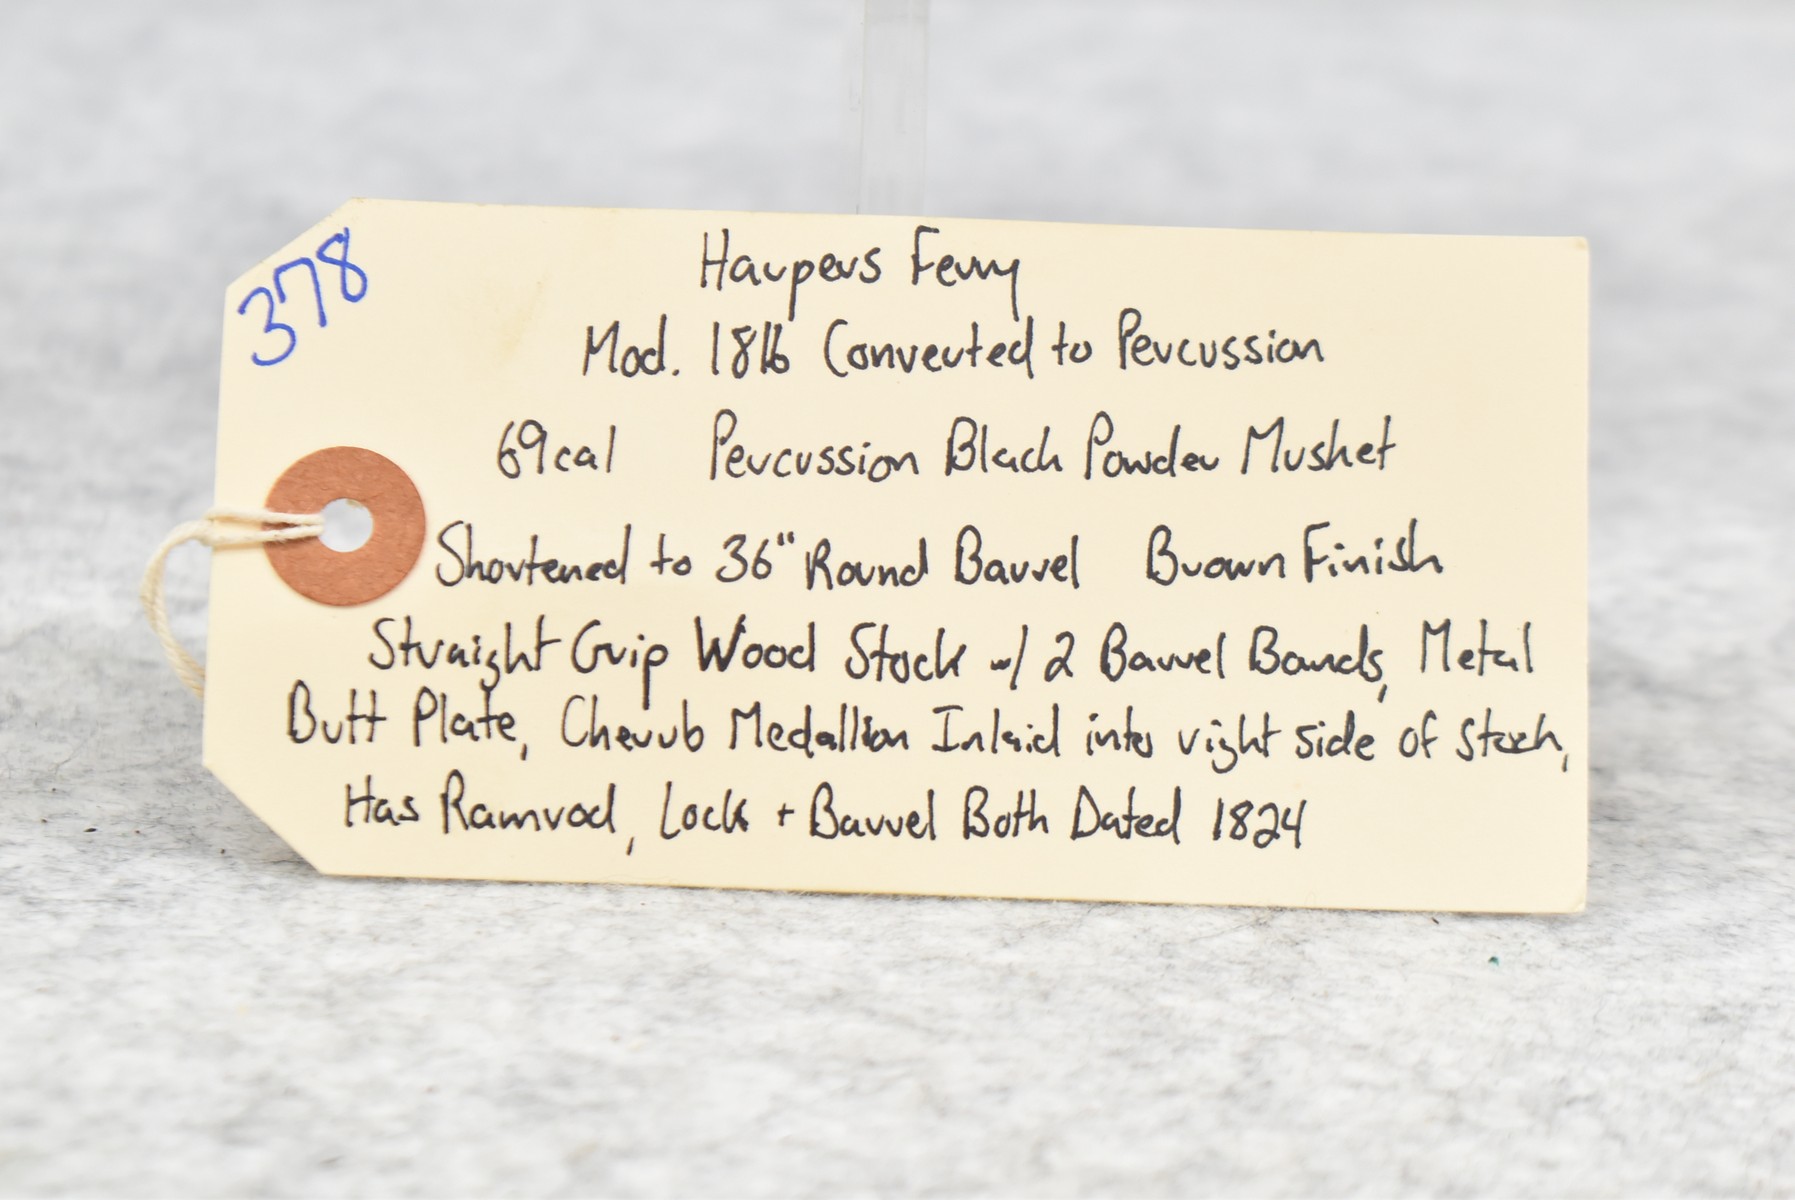 378
Harpers Ferry
Mod. 1816 Converted to Percussion
69cal Percussion Black Powder Musket
Shortened to 36" Round Barrel Brown Finish
Straight Grip Wood Stock w/ 2 Barrel Bands, Metal
Butt Plate, Cherub Medallion Inlaid into right side of stock,
Has Ramrod, Lock + Barrel Both Dated 1824